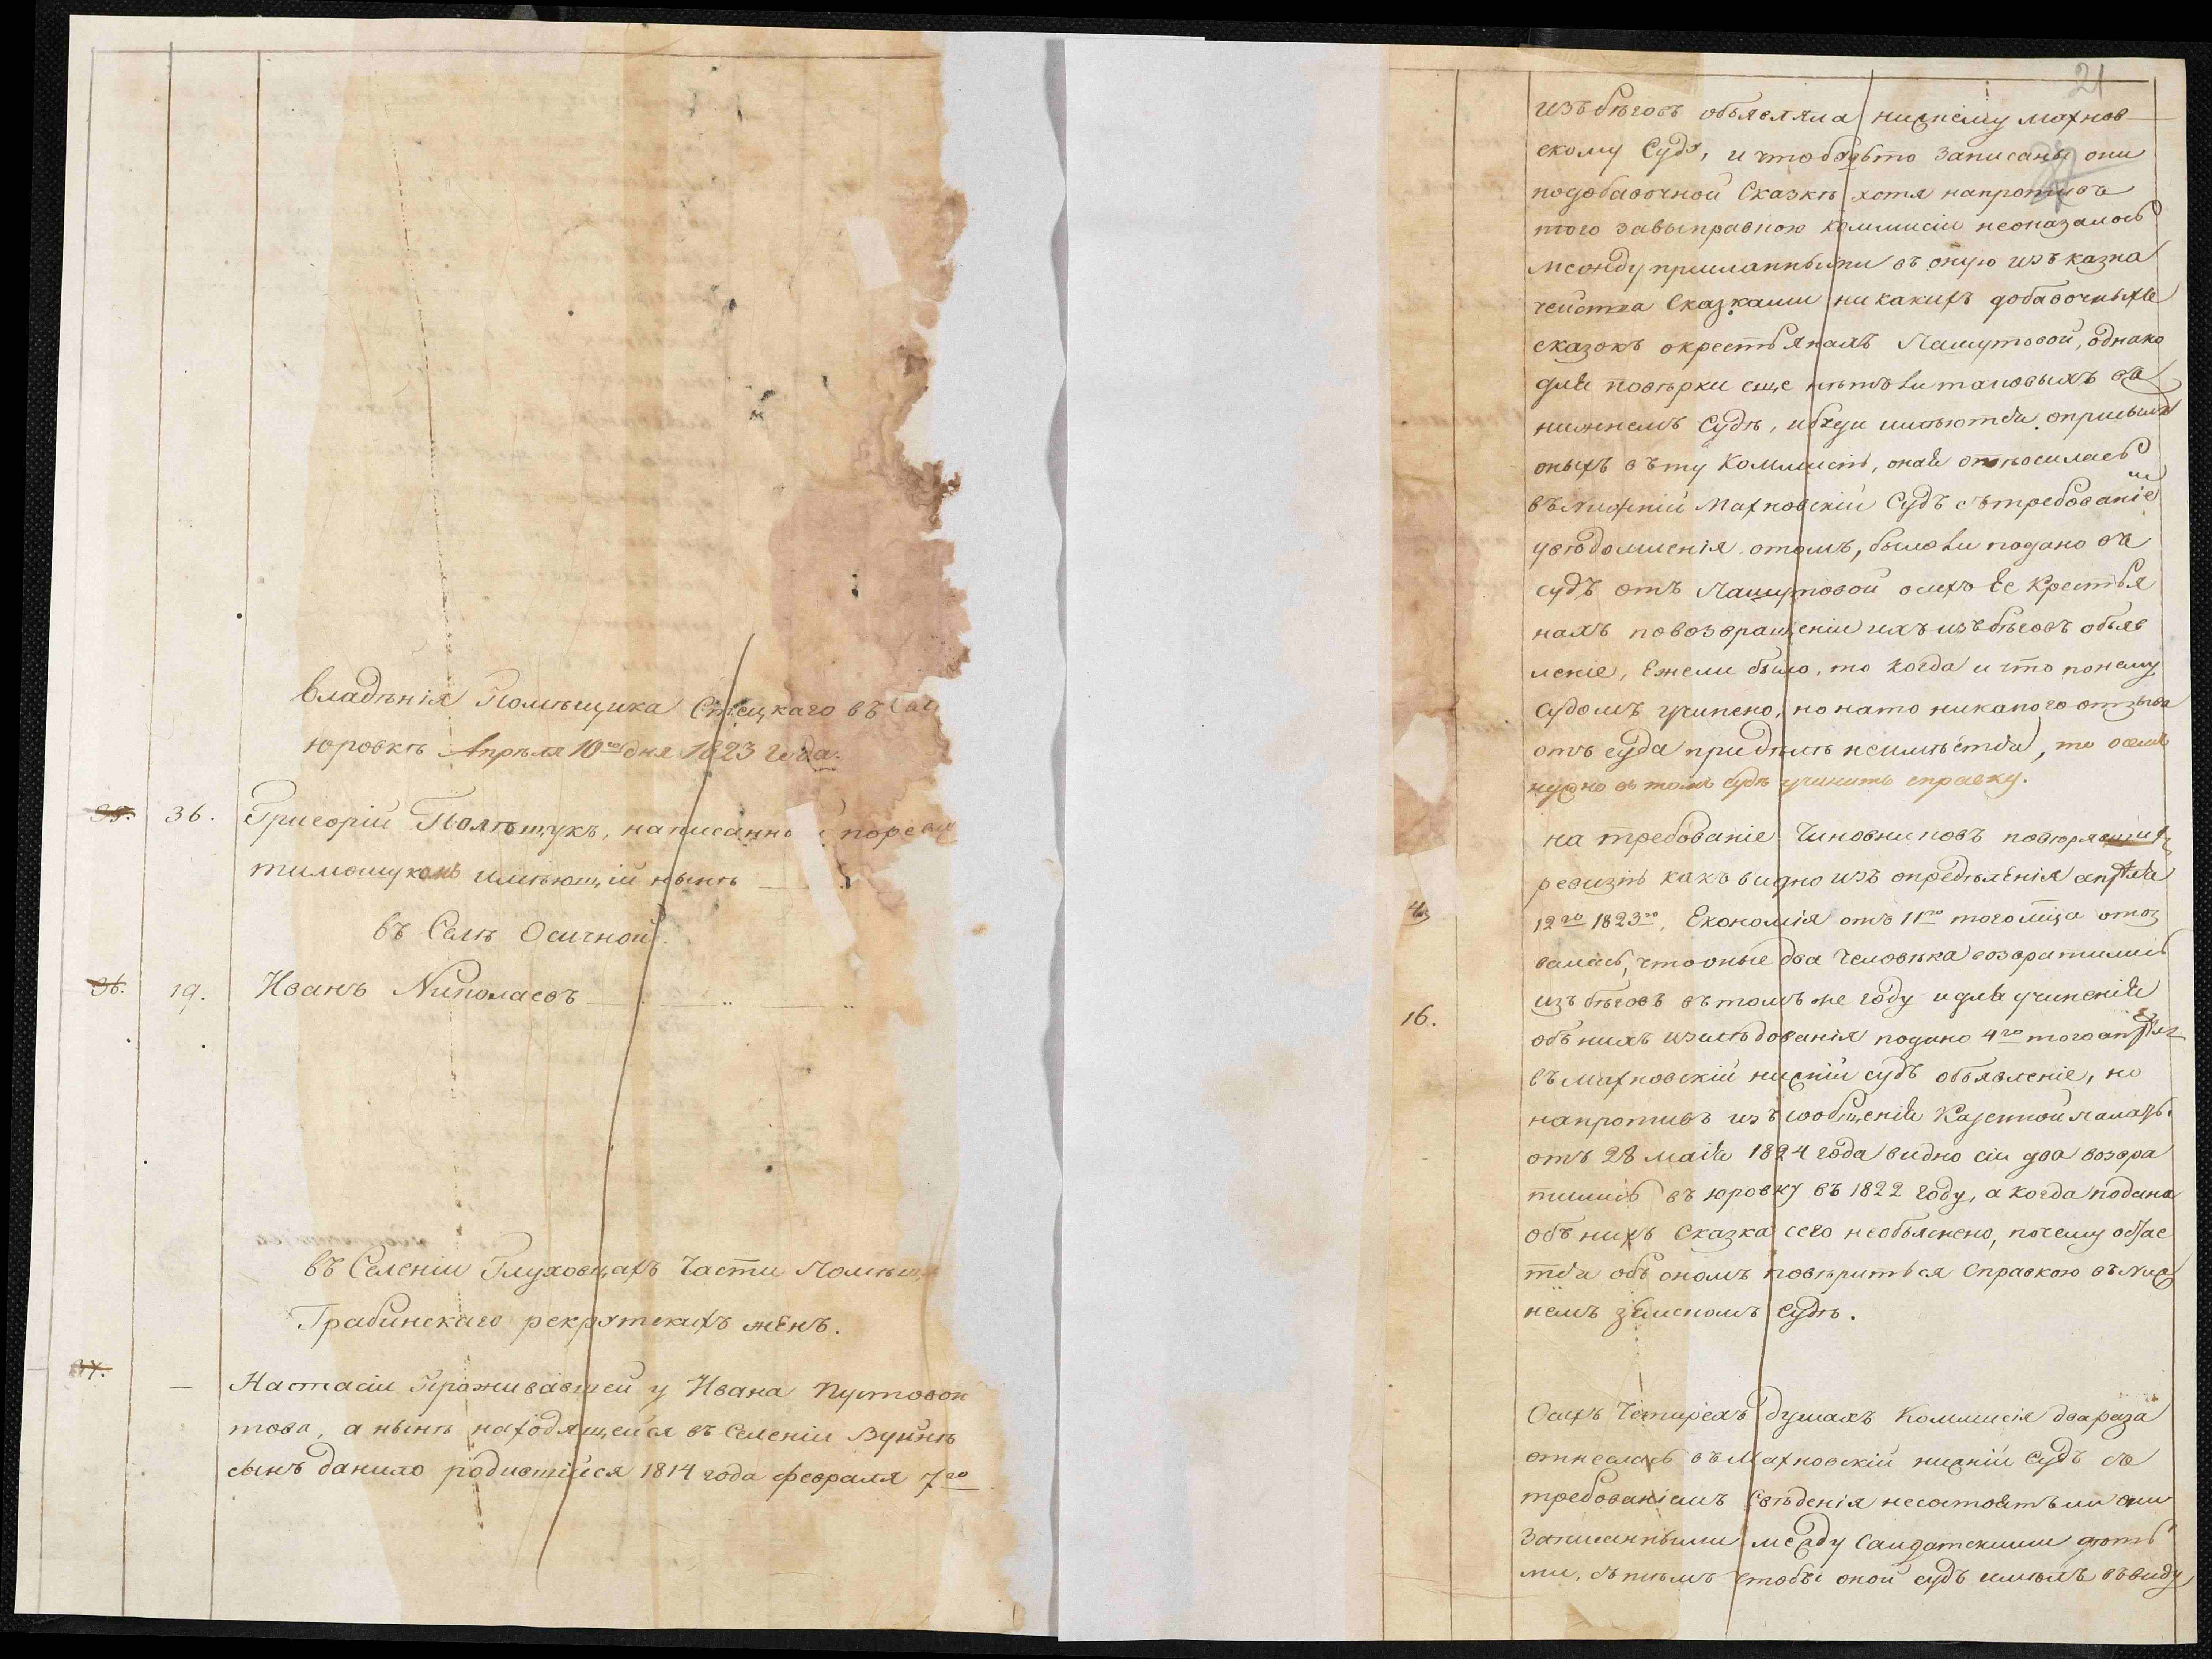 владѣнія Помѣщика Стецкаго въ
юровкѣ Апрѣля 10го дня 1823 года.
35. 36. Григорій Полѣщукъ, написанно
тимошукомъ имѣющій нынѣ
въ Селѣ Осичной.
36. 19. Иванъ Николаевъ
въ Селеніи Глуховцахъ Части Помѣщ
Грабинскаго рекрутскихъ женъ.
37. — Настасіи проживавшей у Ивана Пустовой
това, а нынѣ находящейся въ Селеніи
сынъ данило родившійся 1814 года февраля 7го
21
изъ бѣговъ объявляла нижнему махнов
скому Суду, и что будьто записаны они
подобавочной Сказкѣ хотя напротивъ
того завыправкою коммисіи неоказалось
между присланными въ оную изъ казна
чейства Сказками никакихъ добавочныхъ
сказокъ окрестьянахъ Пашутовой, однако
для повѣрки еще нѣтъ ли таковыхъ въ
нижнемъ Судѣ, и буди имѣются
оныхъ въ ту Коммисію, оная относилась
въ Нижній Махновскій Судъ съ требованіемъ
увѣдомленія отомъ, было ли подано въ
судъ отъ Пашутовой осихъ Ее Крестья
нахъ повозвращеніи ихъ изъ бѣговъ объяв
леніе, Ежели было, то когда и что понему
Судомъ учинено, но нато никакого отзыва
отъ суда придѣлѣ неимѣется, то
нужно въ томъ Судѣ учинить справку.
на требованіе Чиновниковъ повѣрявшихъ
4. ревизію какъ видно изъ опредѣленія апрѣля
12го 1823го, Економія отъ 11го того мца отоз
валась, что оные два человѣка возвратились
16. изъ бѣговъ въ томъ же году и для учиненія
объ нихъ изслѣдованія подано 4го того апрѣля
въ Махновскій нижній судъ объявленіе, но
напротивъ изъ сообщенія Казенной палаты
отъ 28 маія 1824 года видно сіи два возвра
тились въ юровку въ 1822 году, а когда подана
объ нихъ Сказка сего необъяснено, почему
объ ономъ повѣриться Справкою въ Ниж
немъ земскомъ Судѣ.
Осихъ Четирехъ душахъ Коммисія двараза
отнеслась въ Махновскій нижній Судъ съ
требованіемъ Свѣденія несостоятъ ли они
записанными между Салдатскими дѣтъ
ми, съ тѣмъ чтобы оной судъ имѣлъ ввиду